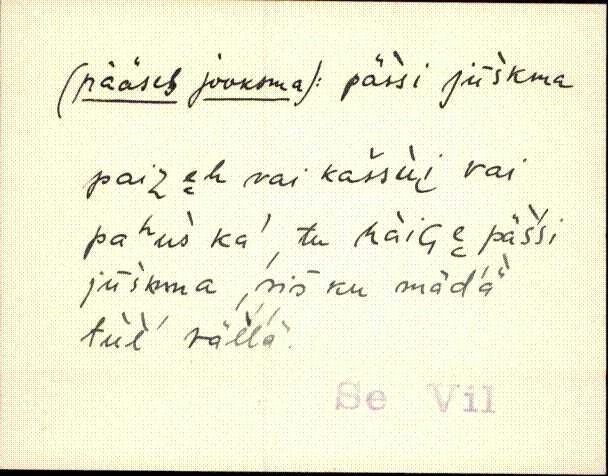 (pääseb jooksma): pä̀šši jū̀škma
paiZe̮h vai kašsùi̮ vai
paʰuš ka', tu hàiGe̮ pä̀šši
jū̀škma, siš ku mädä̀
tùĺ' vä̀ĺĺä̀.
Se Vil